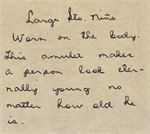 Large Sto. Niño
Worn on the body.
This amulet makes
a person look eter-
nally young no
matter how old he
is.